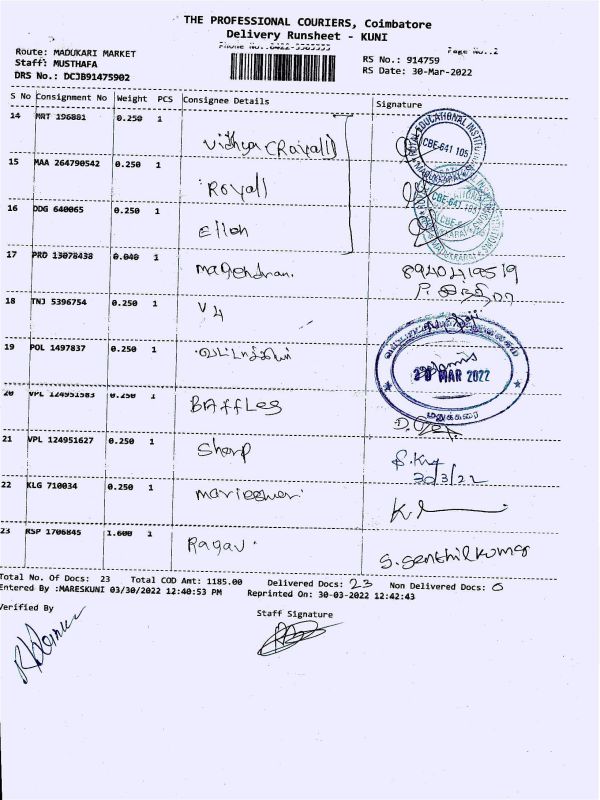 THE PROFESSIONAL COURIERS, Coimbatore
Delivery Runsheet - KUNI
Phone No.:0422-
Page No.:2
Route: MADUKARI MARKET
Staff: MUSTHAFA
DRS No.: DCJB91475902
RS No.: 914759
RS Date: 30-Mar-2022
S No Consignment No Weight PCS Consignee Details Signature
14 MRT 196881 0.250 1
Vidhya (Royall)
15 MAA 264790542 0.250 1
Royall
16 DDG 640065 0.250 1
Ellen
CBE-641 105
CBE-641 105
17 PRD 13078438 0.040 1
Magendran.
18 TNJ 5396754 0.250 1
V4
19 POL 1497837 0.250 1
MAR 2022
மதுக்கரை
20 VPL 124951583 0.250 1
BAFFLES
21 VPL 124951627 0.250 1
Sharp
30/3/22
22 KLG 710034 0.250 1
Marieswari
23 RSP 1706845 1.600 1
Ragav.
S. Senthilkumar
Total No. Of Docs: 23 Total COD Amt: 1185.00 Delivered Docs: 23 Non Delivered Docs: 0
Entered By :MARESKUNI 03/30/2022 12:40:53 PM Reprinted On: 30-03-2022 12:42:43
Verified By
Staff Signature